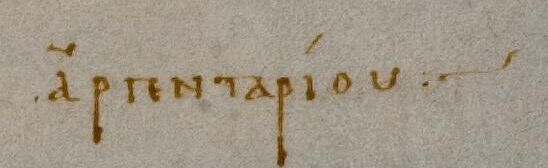 .ἀρπενταρίου :~